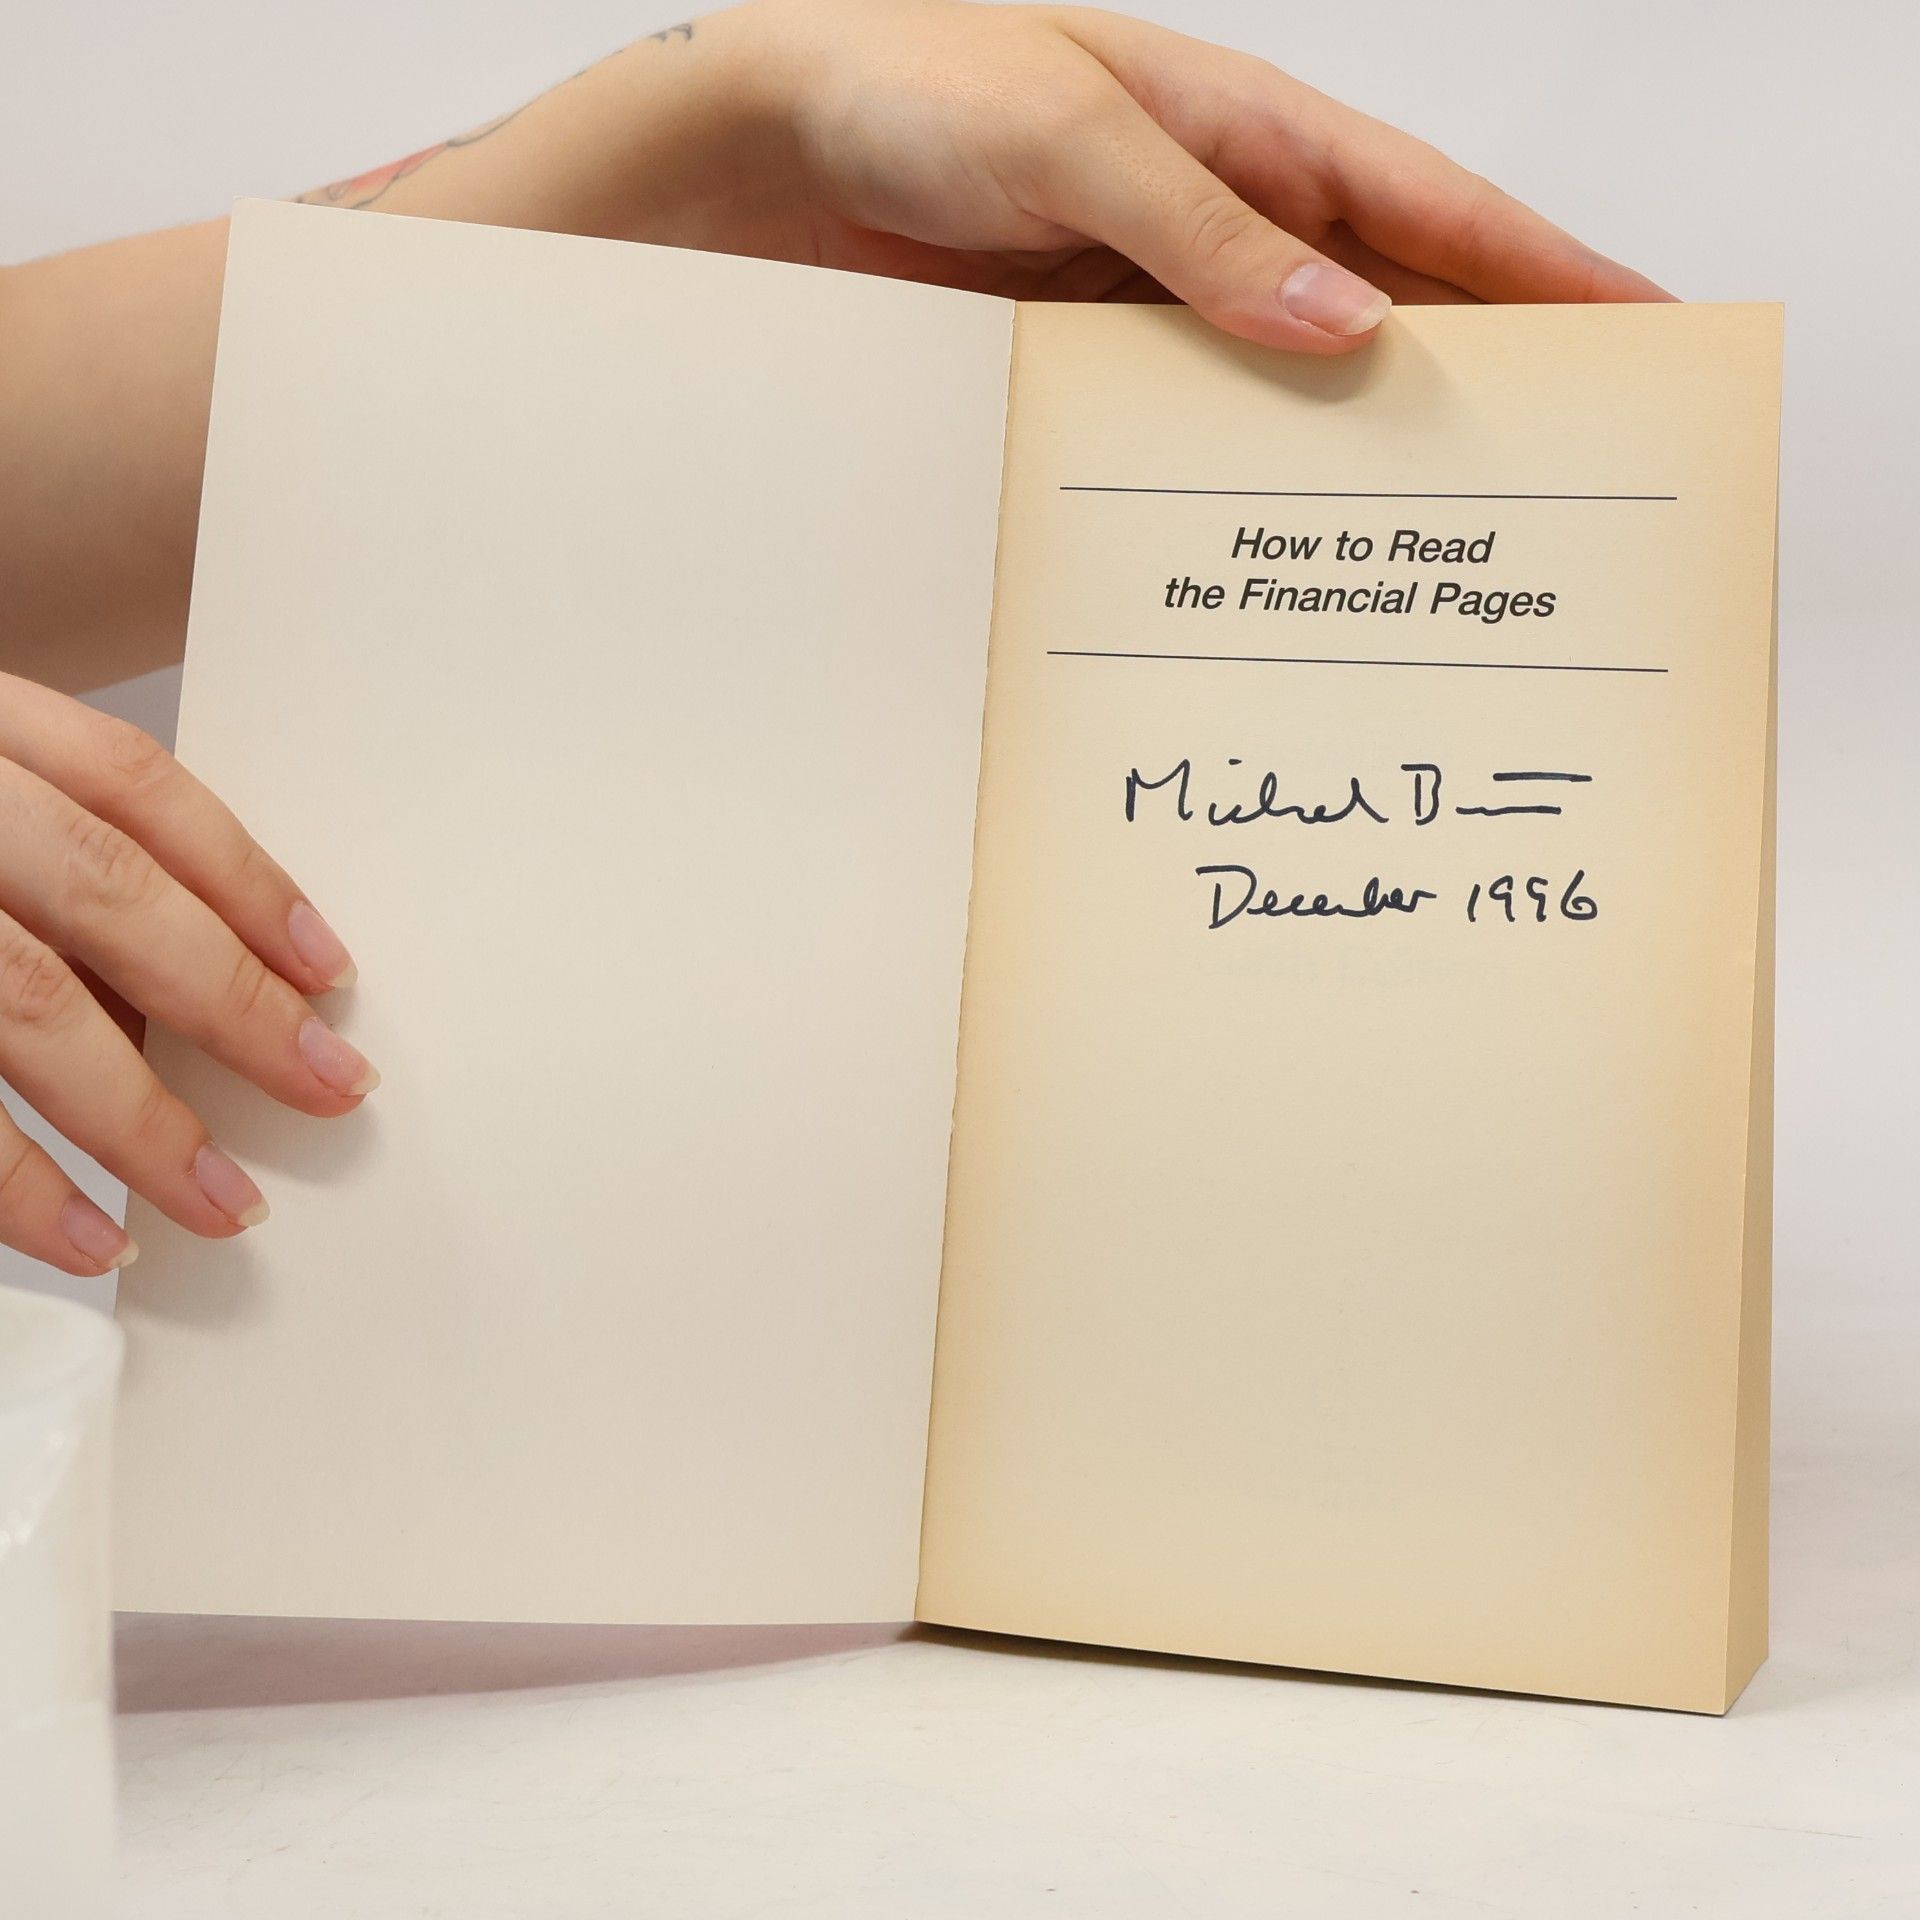 How to Read
the Financial Pages
Michael B
December 1996